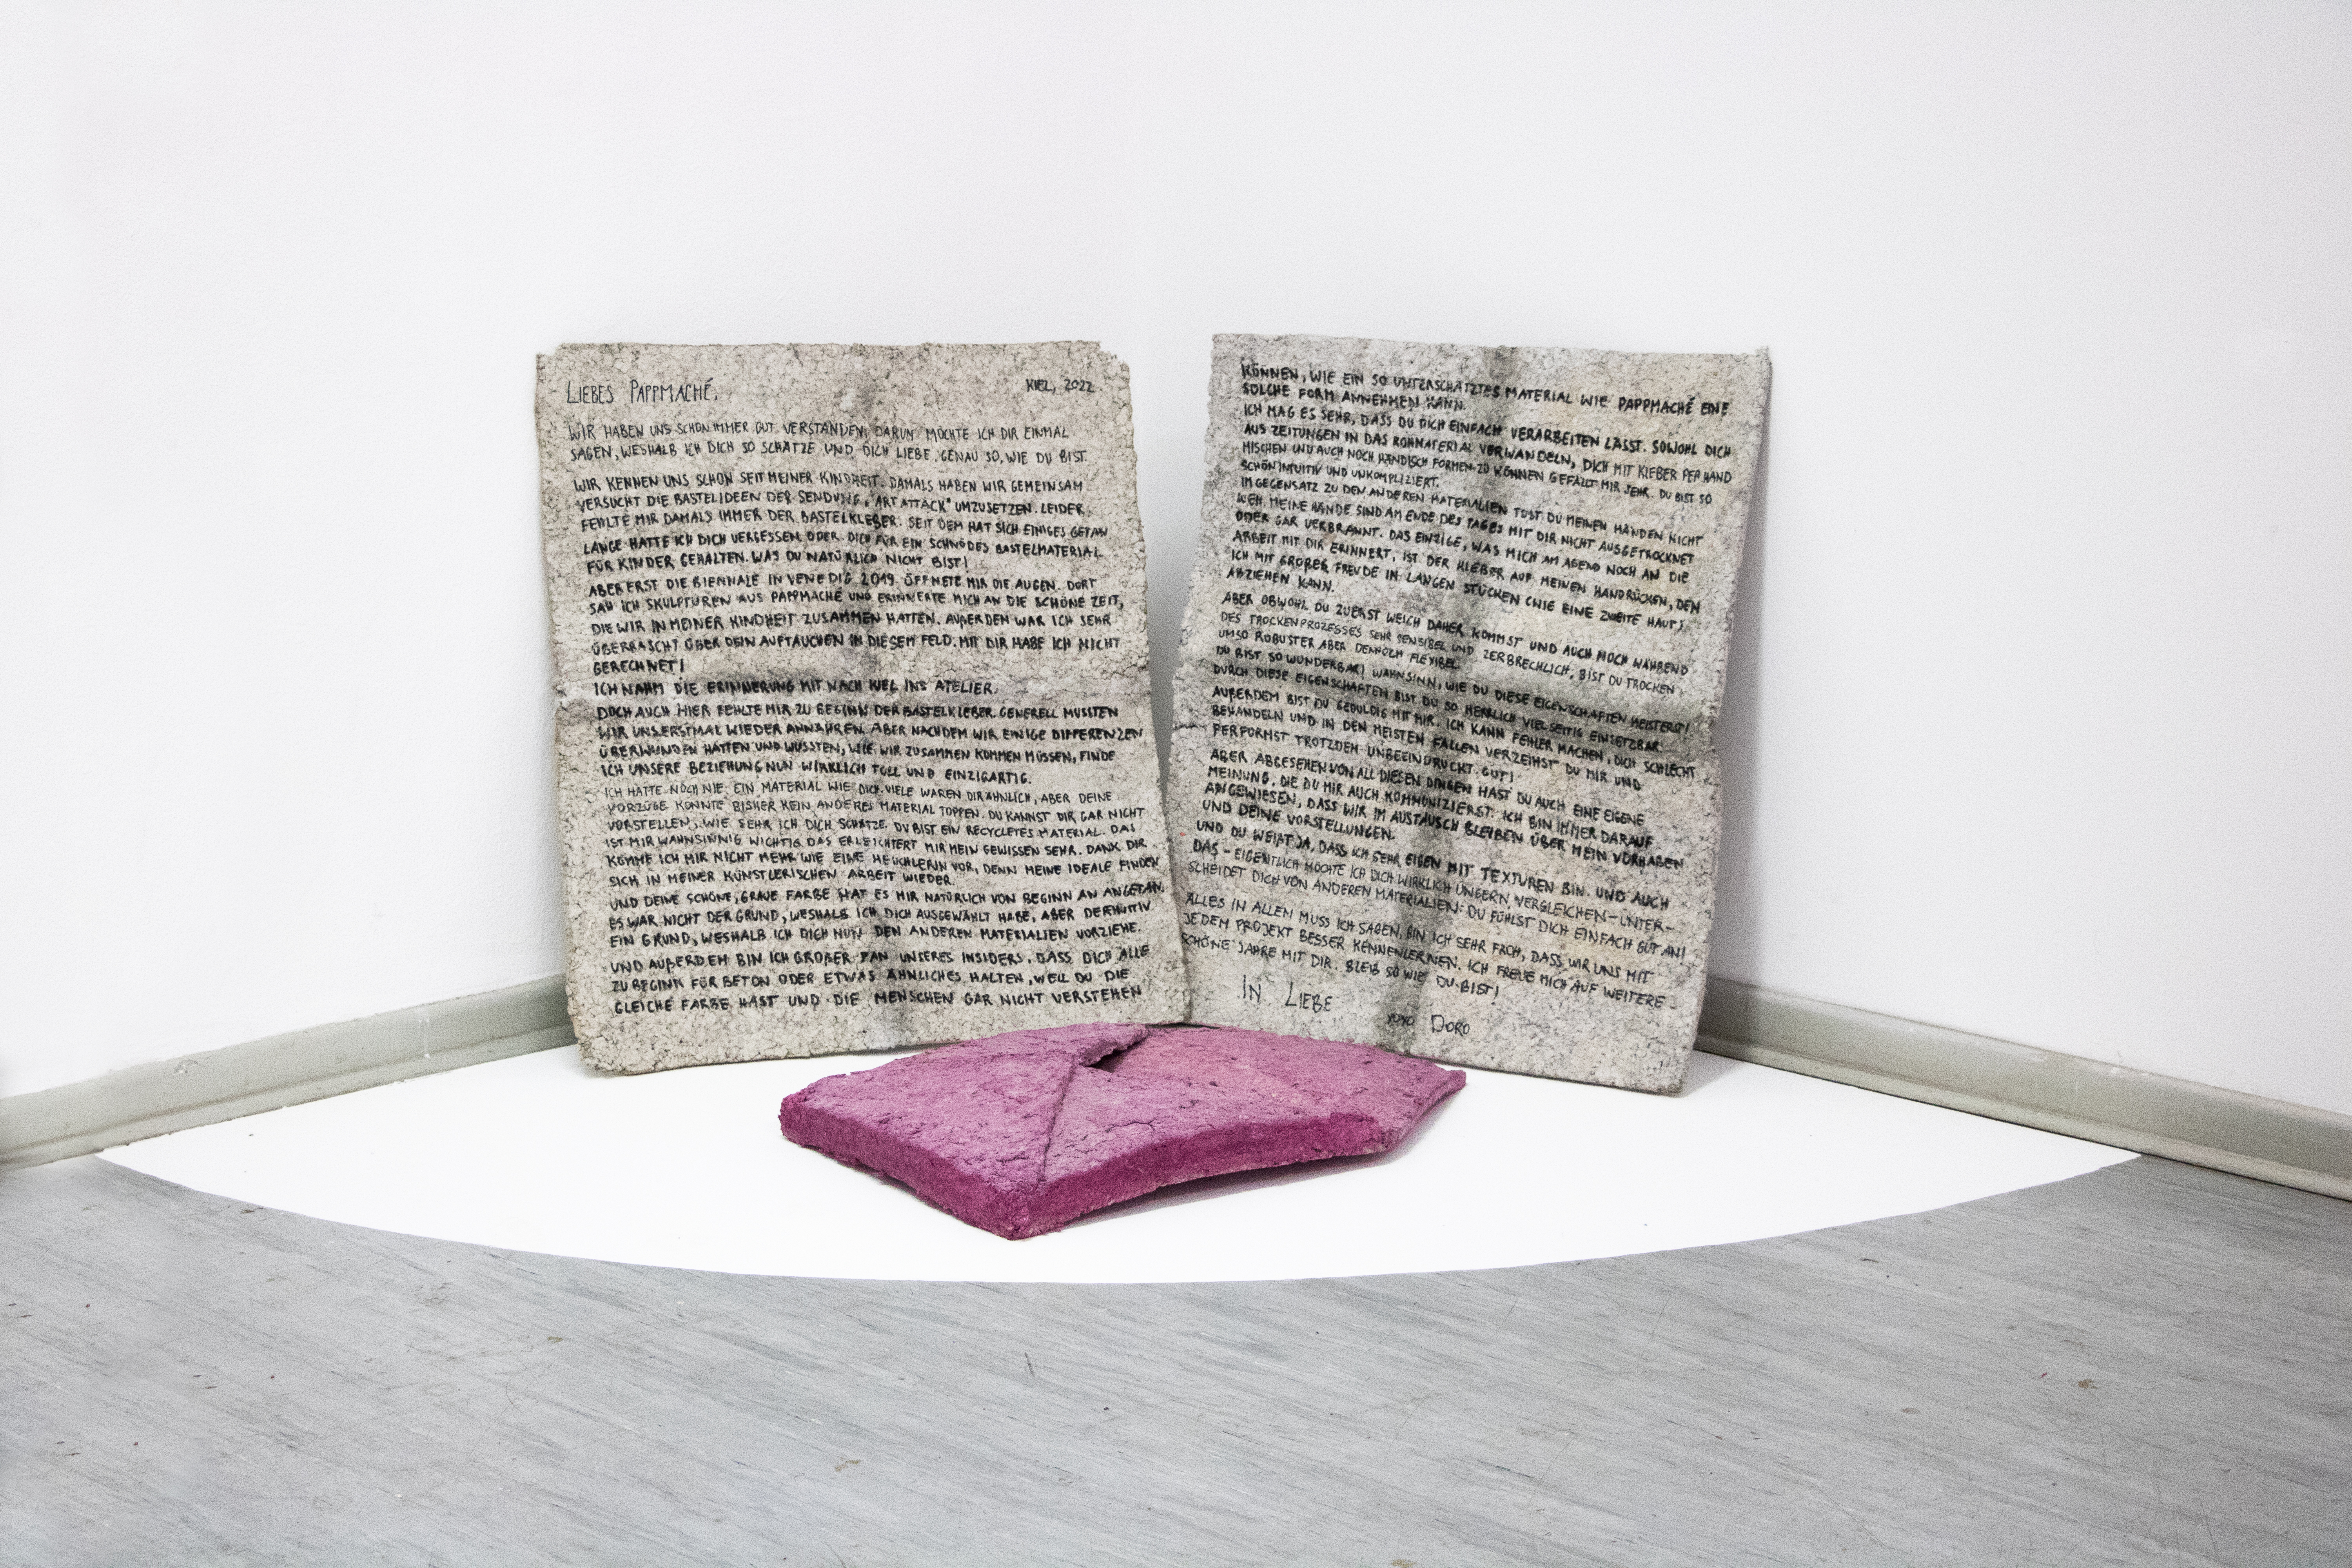 LIEBES PAPPMACHÉ,
KIEL, 2022
WIR HABEN UNS SCHON IMMER GUT VERSTANDEN, DARUM MÖCHTE ICH DIR EINMAL
SAGEN, WESHALB ICH DICH SO SCHÄTZE UND DICH LIEBE, GENAU SO, WIE DU BIST.
WIR KENNEN UNS SCHON SEIT MEINER KINDHEIT. DAMALS HABEN WIR GEMEINSAM
VERSUCHT DIE BASTELIDEEN DER SENDUNG „ART ATTACK" UMZUSETZEN. LEIDER
FEHLTE MIR DAMALS IMMER DER BASTELKLEBER. SEIT DEM HAT SICH EINIGES GETAN.
LANGE HATTE ICH DICH VERGESSEN ODER DICH FÜR EIN SCHNÖDES BASTELMATERIAL
FÜR KINDER GEHALTEN. WAS DU NATÜRLICH NICHT BIST!
ABER ERST DIE BIENNALE IN VENEDIG 2019 ÖFFNETE MIR DIE AUGEN. DORT
SAH ICH SKULPTUREN AUS PAPPMACHÉ UND ERINNERTE MICH AN DIE SCHÖNE ZEIT,
DIE WIR IN MEINER KINDHEIT ZUSAMMEN HATTEN. AUßERDEM WAR ICH SEHR
ÜBERRASCHT ÜBER DEIN AUFTAUCHEN IN DIESEM FELD. MIT DIR HABE ICH NICHT
GERECHNET!
ICH NAHM DIE ERINNERUNG MIT NACH KIEL INS ATELIER.
DOCH AUCH HIER FEHLTE MIR ZU BEGINN DER BASTELKLEBER. GENERELL MUSSTEN
WIR UNS ERSTMAL WIEDER ANNÄHREN. ABER NACHDEM WIR EINIGE DIFFERENZEN
ÜBERWUNDEN HATTEN UND WUSSTEN, WIE WIR ZUSAMMEN KOMMEN MÜSSEN, FINDE
ICH UNSERE BEZIEHUNG NUN WIRKLICH TOLL UND EINZIGARTIG.
ICH HATTE NOCH NIE EIN MATERIAL WIE DICH. VIELE WAREN DIR ÄHNLICH, ABER DEINE
VORZÜGE KONNTE BISHER KEIN ANDERES MATERIAL TOPPEN. DU KANNST DIR GAR NICHT
VORSTELLEN, WIE SEHR ICH DICH SCHÄTZE. DU BIST EIN RECYCLETES MATERIAL. DAS
IST MIR WAHNSINNIG WICHTIG. DAS ERLEICHTERT MIR MEIN GEWISSEN SEHR. DANK DIR
KOMME ICH MIR NICHT MEHR WIE EINE HEUCHLERIN VOR, DENN MEINE IDEALE FINDEN
SICH IN MEINER KÜNSTLERISCHEN ARBEIT WIEDER.
UND DEINE SCHÖNE, GRAUE FARBE HAT ES MIR NATÜRLICH VON BEGINN AN ANGETAN.
ES WAR NICHT DER GRUND, WESHALB ICH DICH AUSGEWÄHLT HABE, ABER DEFINITIV
EIN GRUND, WESHALB ICH DICH NUN DEN ANDEREN MATERIALIEN VORZIEHE.
UND AUßERDEM BIN ICH GROßER FAN UNSERES INSIDERS, DASS DICH ALLE
ZU BEGINN FÜR BETON ODER ETWAS ÄHNLICHES HALTEN, WEIL DU DIE
GLEICHE FARBE HAST UND DIE MENSCHEN GAR NICHT VERSTEHEN
KÖNNEN, WIE EIN SO UNTERSCHÄTZTES MATERIAL WIE PAPPMACHÉ EINE
SOLCHE FORM ANNEHMEN KANN.
ICH MAG ES SEHR, DASS DU DICH EINFACH VERARBEITEN LÄSST. SOWOHL DICH
AUS ZEITUNGEN IN DAS ROHMATERIAL VERWANDELN, DICH MIT KLEBER PER HAND
MISCHEN UND AUCH NOCH HÄNDISCH FORMEN ZU KÖNNEN GEFÄLLT MIR SEHR. DU BIST SO
SCHÖN INTUITIV UND UNKOMPLIZIERT.
IM GEGENSATZ ZU DEN ANDEREN MATERIALIEN TUST DU MEINEN HÄNDEN NICHT
WEH. MEINE HÄNDE SIND AM ENDE DES TAGES MIT DIR NICHT AUSGETROCKNET
ODER GAR VERBRANNT. DAS EINZIGE, WAS MICH AM ABEND NOCH AN DIE
ARBEIT MIT DIR ERINNERT, IST DER KLEBER AUF MEINEN HANDRÜCKEN, DEN
ICH MIT GROßER FREUDE IN LANGEN STÜCKEN (WIE EINE ZWEITE HAUT)
ABZIEHEN KANN.
ABER OBWOHL DU ZUERST WEICH DAHER KOMMST UND AUCH NOCH WÄHREND
DES TROCKENPROZESSES SEHR SENSIBEL UND ZERBRECHLICH, BIST DU TROCKEN
UMSO ROBUSTER ABER DENNOCH FLEXIBEL.
DU BIST SO WUNDERBAR! WAHNSINN, WIE DU DIESE EIGENSCHAFTEN MEISTERST!
DURCH DIESE EIGENSCHAFTEN BIST DU SO HERRLICH VIELSEITIG EINSETZBAR.
AUßERDEM BIST DU GEDULDIG MIT MIR. ICH KANN FEHLER MACHEN, DICH SCHLECHT
BEHANDELN UND IN DEN MEISTEN FÄLLEN VERZEIHST DU MIR UND
PERFORMST TROTZDEM UNBEEINDRUCKT GUT!
ABER ABGESEHEN VON ALL DIESEN DINGEN HAST DU AUCH EINE EIGENE
MEINUNG, DIE DU MIR AUCH KOMMUNIZIERST. ICH BIN IMMER DARAUF
ANGEWIESEN, DASS WIR IM AUSTAUSCH BLEIBEN ÜBER MEIN VORHABEN
UND DEINE VORSTELLUNGEN.
UND DU WEIßT JA, DASS ICH SEHR EIGEN MIT TEXTUREN BIN. UND AUCH
DAS - EIGENTLICH MÖCHTE ICH DICH WIRKLICH UNGERN VERGLEICHEN - UNTER-
SCHEIDET DICH VON ANDEREN MATERIALIEN: DU FÜHLST DICH EINFACH GUT AN!
ALLES IN ALLEM MUSS ICH SAGEN, BIN ICH SEHR FROH, DASS WIR UNS MIT
JEDEM PROJEKT BESSER KENNENLERNEN. ICH FREUE MICH AUF WEITERE
SCHÖNE JAHRE MIT DIR. BLEIB SO WIE DU BIST!
IN LIEBE
XOXO DORO